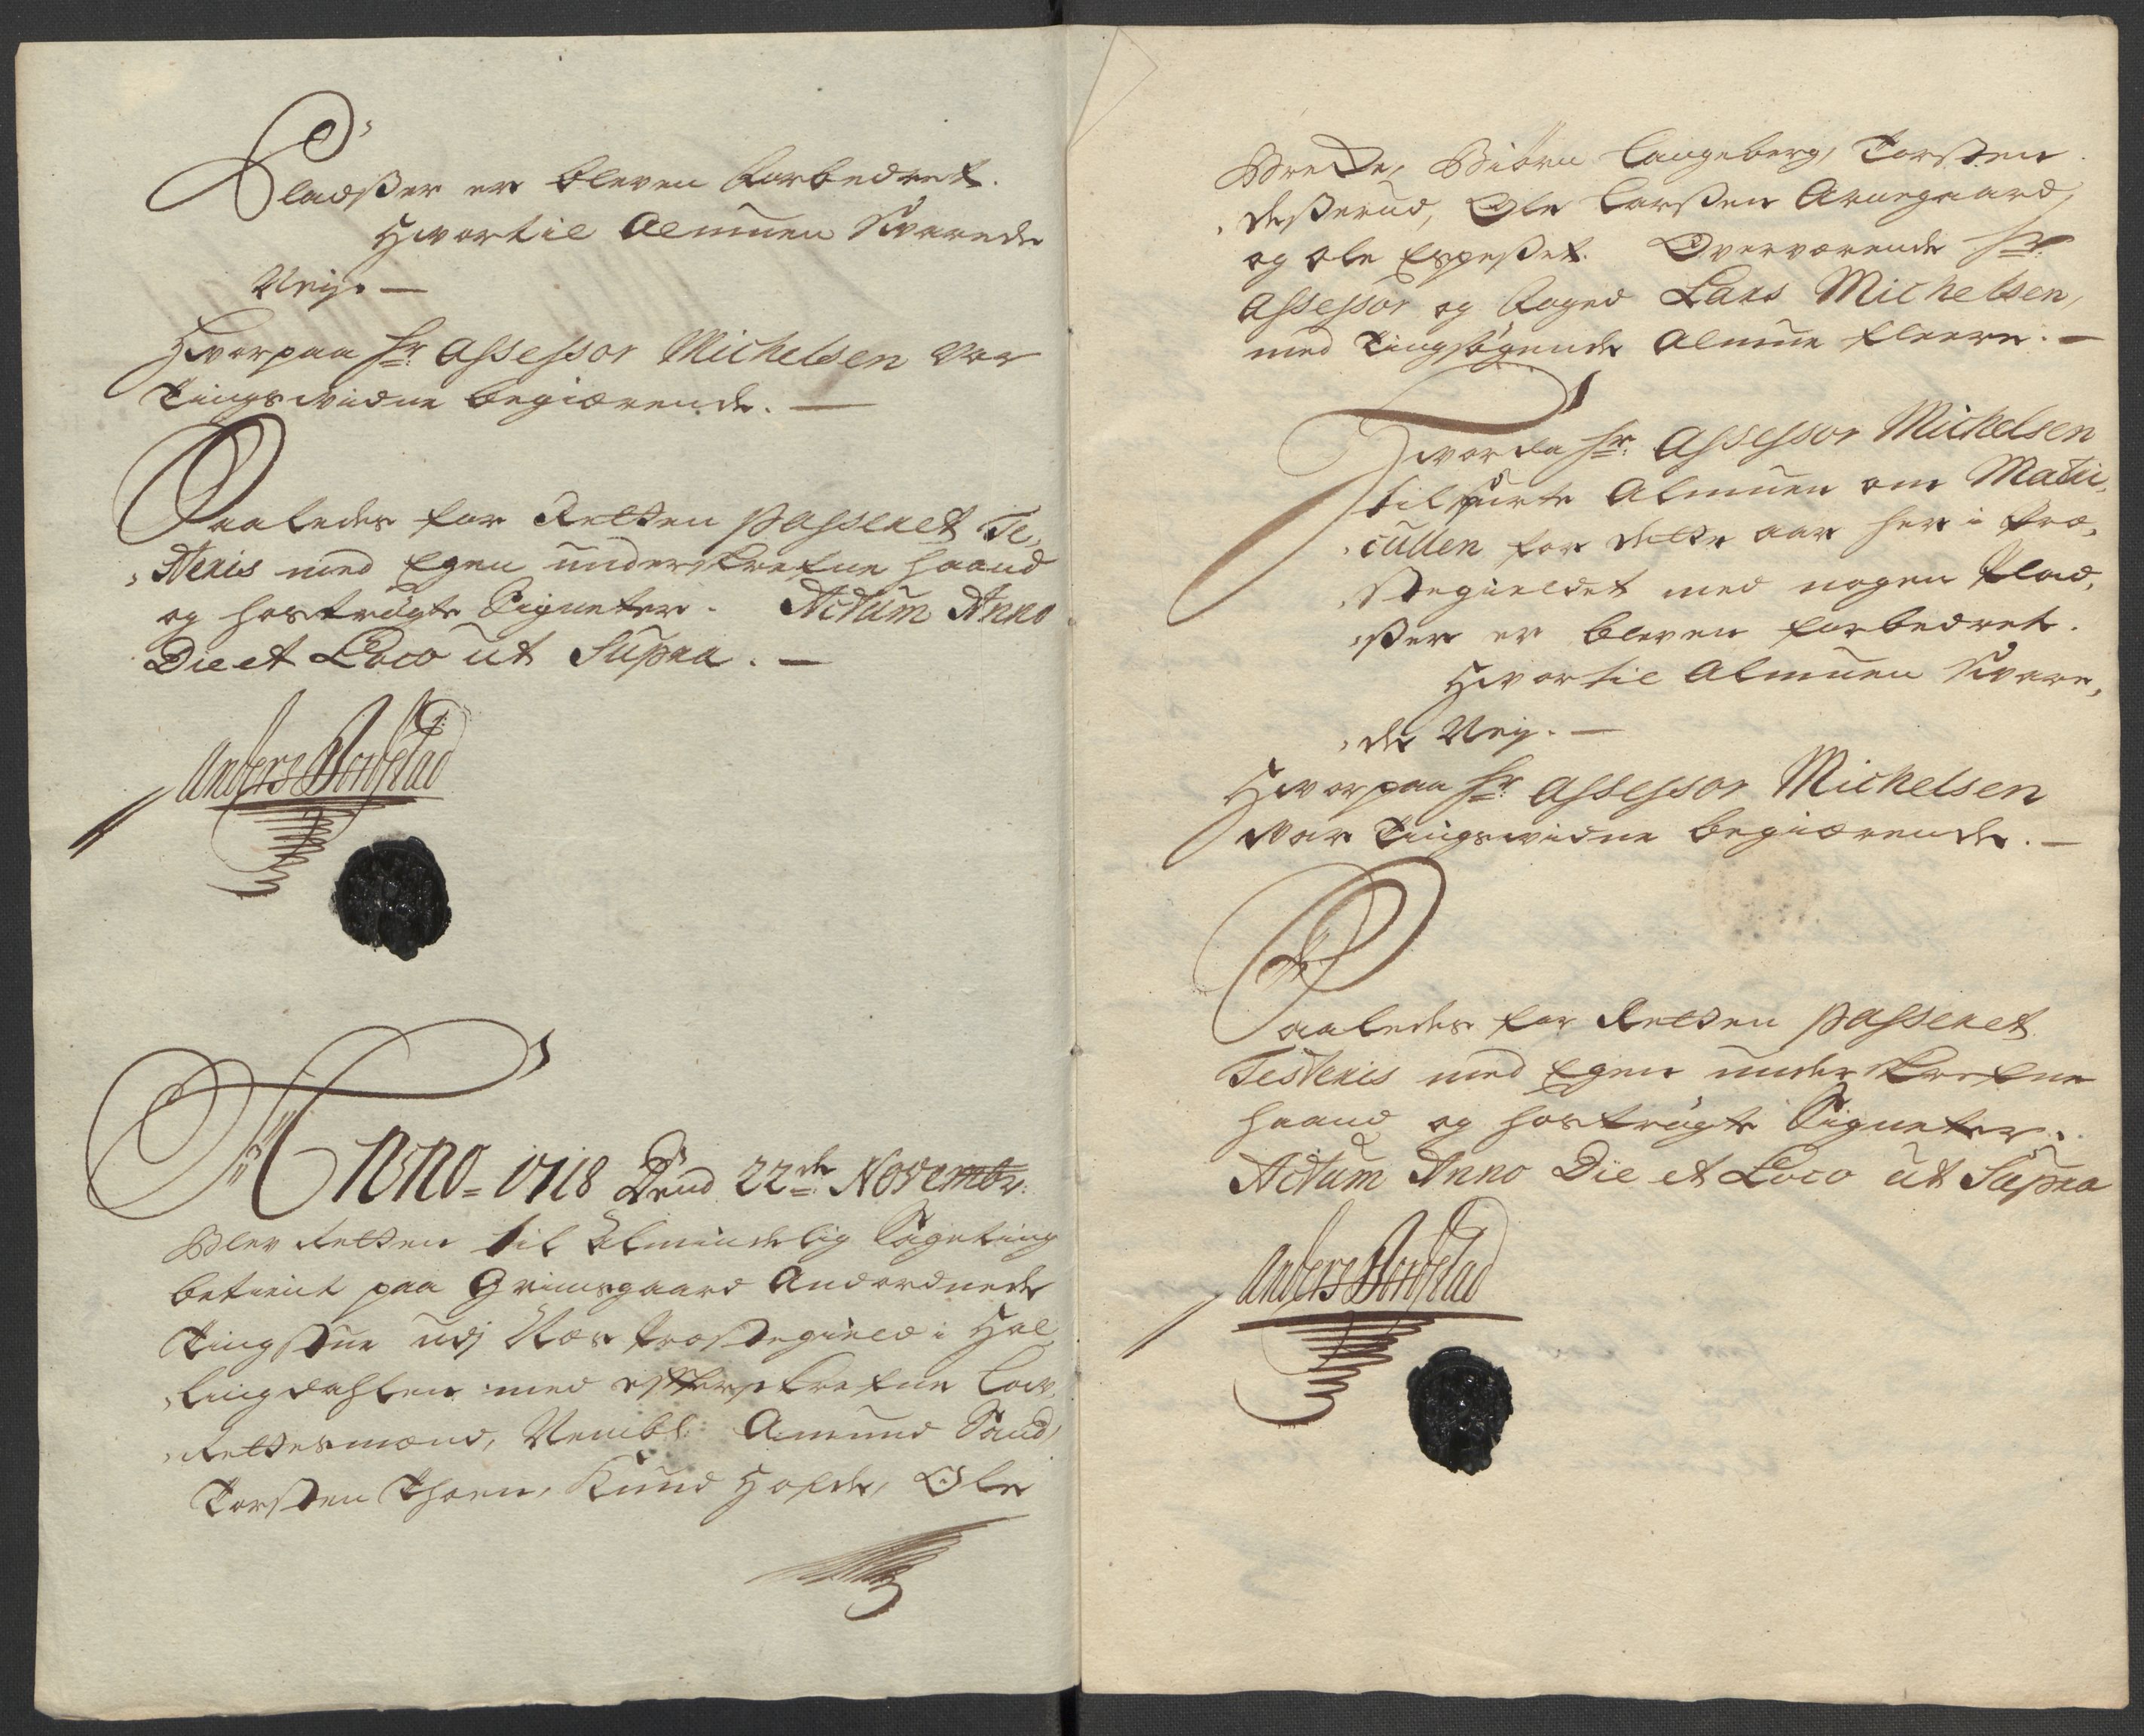 Pladßer er bleven forbedret.
Hvortil Almuen Svarede
Neij. —
Hvorpaa Hr: Assessor Michelsen var
Tingsvidne begiærende. —
Saaledes for Retten passeret Te,
,steris med Egen underskrefne haand
og hoströgte Signeter. Actum Anno
Die et Loco ut Supra. —
Anders Bordstad
Anno 1718 Dend 22de Novembr:
Blev Retten til Almindelig Sageting
betient paa Grimsgaard Andordnede
Tingstue udj Næs Præstegield i Hal,
,lingdahlen med efterskrefne Lav,
,Rettesmænd, Nembl: Amund Sand,
Torsten Thoen, Knud Hofde, Ole
Brette, Biörn Langeberg, Torsten
,deßerud, Ole Larßen Arnegaard,
og Ole Espeset. Overværende Hr:
Assessor og Foged Lars Michelsen,
med Tingsögende Almue fleere. —
Hvorda Hr: Assessor Michelsen
tilspurte Almuen om Matri,
,cullen for dette aar her i Præ,
,stegieldet med nogen Plad,
,ßer er bleven forbedret.
Hvortil Almuen Svare,
,de Neij. —
Hvorpaa Hr: Assessor Michelsen
var Tingsvidne begiærende. —
Saaledes for Retten passeret
Testeris med Egen underskrefne
haand og hoströgte Signeter.
Actum Anno Die et Loco ut Supra
Anders Bordstad